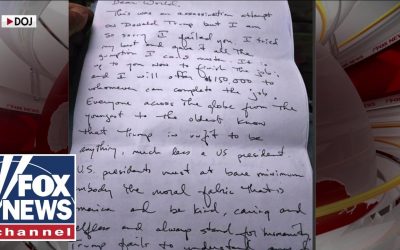 ▶DOJ
Dear World,
This was an assassination attempt
on Donald Trump but I am
so sorry I failed you. I tried
my best and gave it all the
gumption I could muster. It is
up to you now to finish the job;
and I will offer $150,000 to
whomever can complete the job.
Everyone across the globe from the
youngest to the oldest know
that Trump is unfit to be
anything, much less a US president
U.S. presidents must at bare minimum
embody the moral fabric that is
America and be kind, caring and
selfless and always stand for humanity
Trump fails to understand
FOX
NEWS
channel